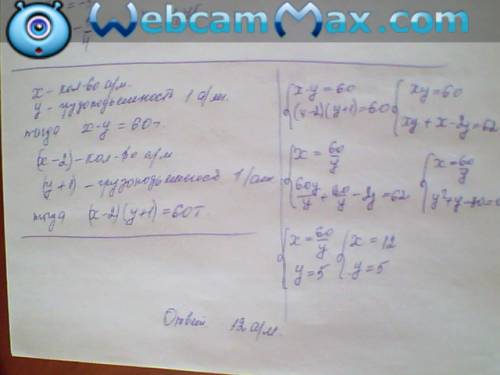 WebcamMax.com
x - кол-во а/м.
y - грузоподъемность 1 а/м.
тогда x·y = 60т.
(x-2) - кол-во а/м
(y+1) - грузоподъемность 1 а/м
тогда (x-2)(y+1) = 60т
{ x·y = 60
(x-2)(y+1) = 60
{ xy = 60
xy + x - 2y = 62
{ x = 60/y
60y/y + 60/y - 2y = 62
{ x = 60/y
y² + y - 30 = 0
{ x = 60/y
y = 5
{ x = 12
y = 5
Ответ 12 а/м.